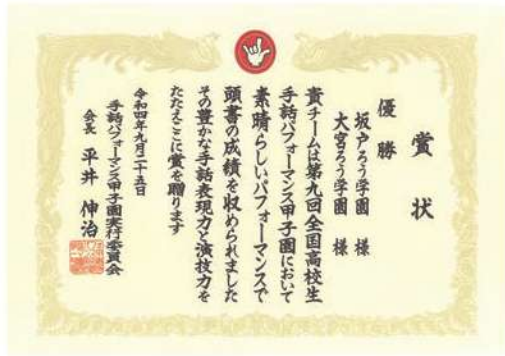 賞状
優勝
坂戸ろう学園 様
大宮ろう学園 様
貴チームは第九回全国高校生
手話パフォーマンス甲子園において
素晴らしいパフォーマンスで
頭書の成績を収められました
その豊かな手話表現力と演技力を
たたえここに賞を贈ります
令和四年九月二十五日
手話パフォーマンス甲子園実行委員会
会長 平井 伸治